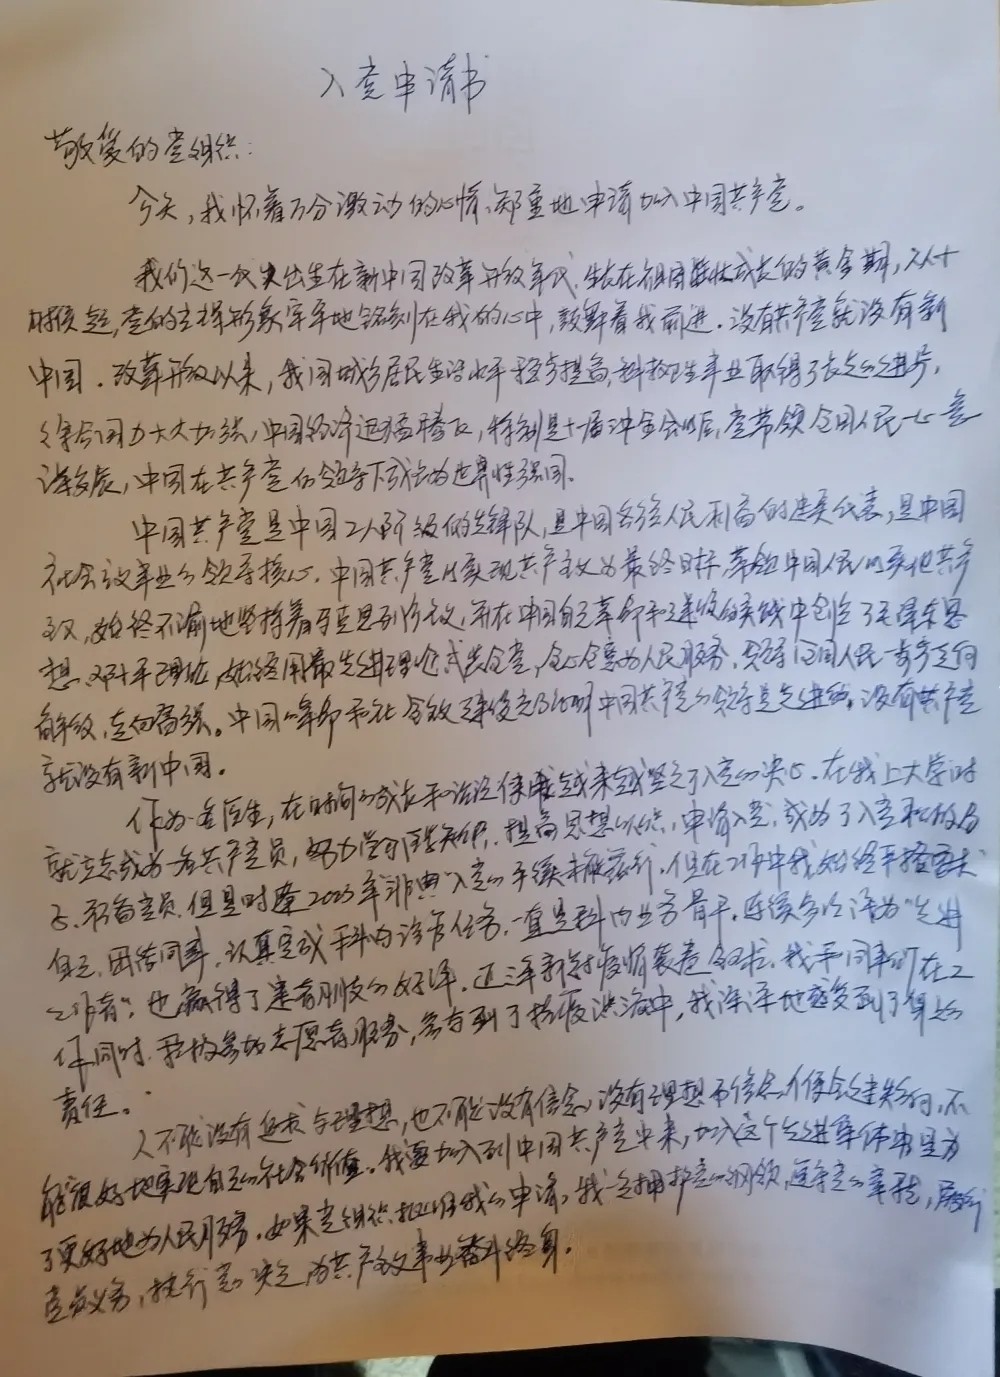 入党申请书
敬爱的党组织：
今天，我怀着万分激动的心情、郑重地申请加入中国共产党。
我们这一代出生在新中国改革开放年代，生长在祖国茁壮成长的黄金期，从小
时候起，党的主握形象牢牢地铭刻在我的心中，鼓舞着我前进。没有共产党就没有新
中国。改革开放以来，我国城乡居民生活水平稳步提高，科教卫生事业取得了长足的进步，
综合国力大大加强，中国经济迅猛腾飞，特别是十届中全会以后，党带领全国人民一心一意
谋发展，中国在共产党的领导下成为世界性强国。
中国共产党是中国工人阶级的先锋队，是中国各族人民利益的忠实代表，是中国
社会主义事业的领导核心。中国共产党以实现共产主义为最终目标，带领中国人民以实现共产
主义，始终不渝地坚持着马克思列宁主义，并在中国自己革命和建设的实践中创造了毛泽东思
想、邓小平理论，始终用最先进理论武装全党，全心全意为人民服务，领导全国人民一步步走向
解放，走向富强。中国的革命和社会主义建设充分证明中国共产党的领导是先进的，没有共产党
就没有新中国。
作为一名医生，在时间的成长和政治信念越来越坚定了入党的决心。在我上大学时
就立志成为一名共产党员，努力学习医学知识，提高思想认识，申请入党，成为了入党积极分
子、预备党员，但是时逢2003年"非典"入党的手续未被履行。但在工作中我始终严格要求
自己，团结同事，认真完成科内诊疗任务，一直是科内业务骨干，连续多次评为"先进
工作者"，也赢得了患者朋友的好评。近三年新冠疫情袭卷全球，我和同事们在工
作同时，积极参加志愿者服务，参与到了抗疫洪流中，我深深地感受到了身上的
责任。
人不能没有追求与理想，也不能没有信念，没有理想和信念人便会迷失方向，不
能很好地实现自己的社会价值。我要加入到中国共产党中来，加入这个先进群体中是为
了更好地为人民服务。如果党组织批准我的申请，我一定拥护党的纲领，遵守党的章程，履行
党员义务，执行党的决定，为共产主义事业奋斗终身。